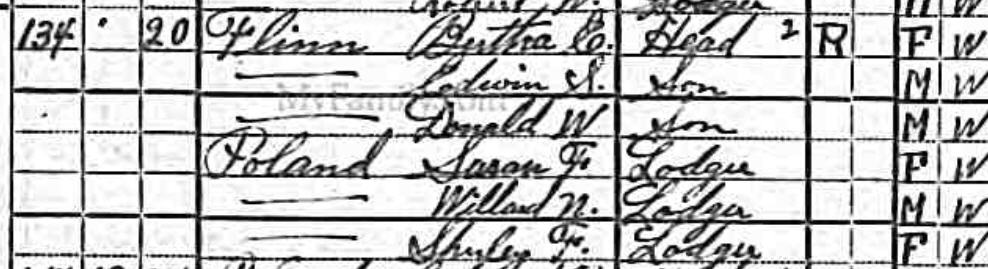 Robert W. Lodger M W
134 20 Flinn Bertha E. Head 2 R F W
— Edwin S. Son M W
— Donald W Son M W
Poland Sarah F. Lodger F W
— Willard N. Lodger M W
— Shirley F. Lodger F W